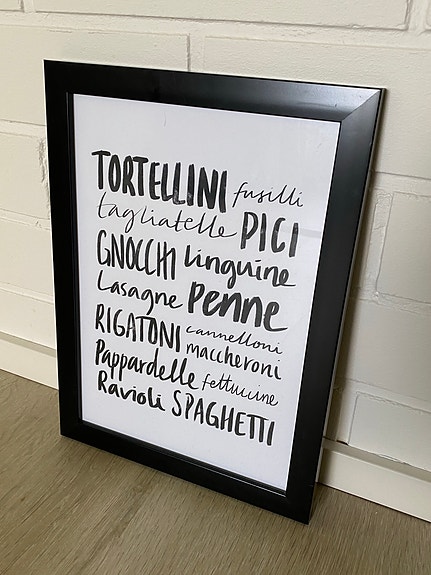 TORTELLINI fusilli
tagliatelle PICI
GNOCCHI Linguine
Lasagne Penne
RIGATONI cannelloni
maccheroni
Pappardelle fettuccine
Ravioli SPAGHETTI